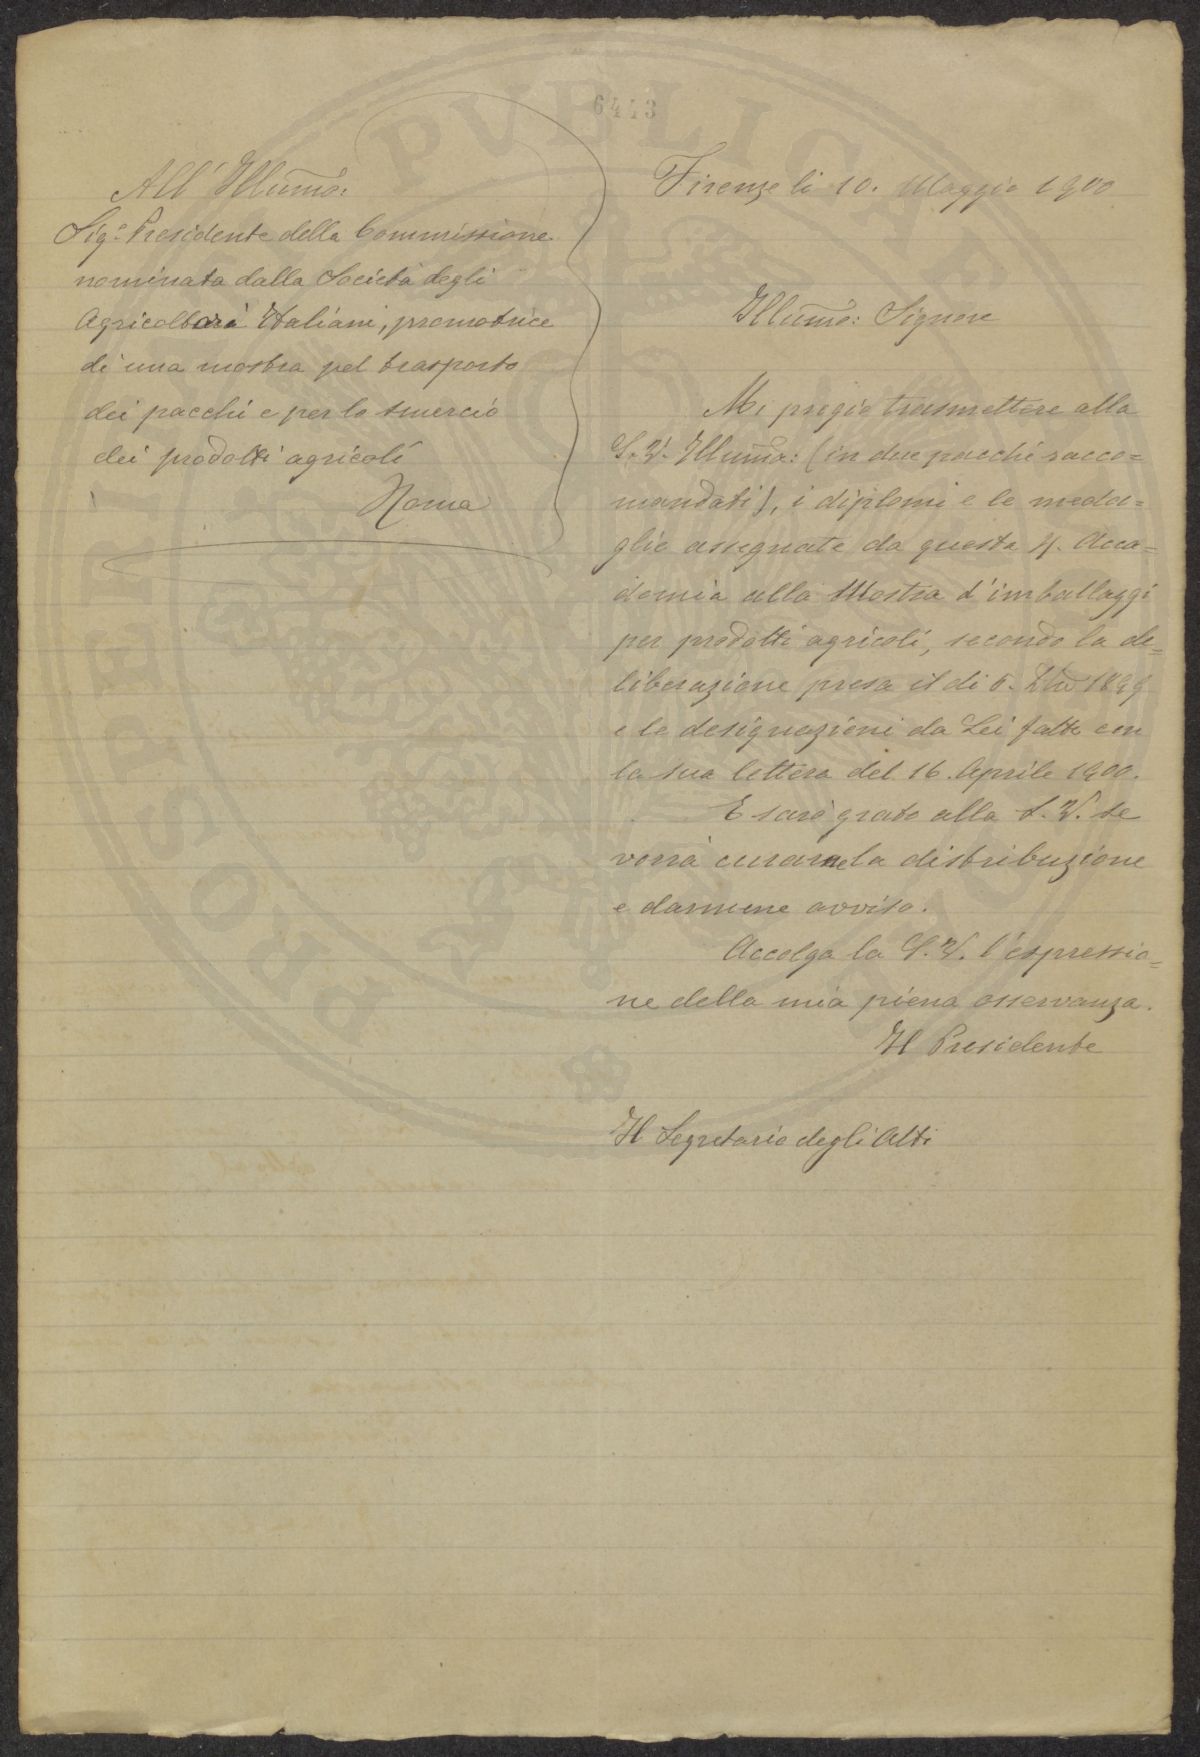 6443
All' Illumo:
Sigr Presidente della Commissione
nominata dalla Società degli
Agricoltori Italiani, promotrice
di una mostra pel trasporto
dei pacchi e per lo smercio
dei prodotti agricoli
Roma
Firenze li 10. Maggio 1900
Illumo: Signore
Mi pregio trasmettere alla
S. V. Illuma: (in due pacchi racco=
mandati), i diplomi e le meda=
glie assegnate da questa R. Acca=
demia alla Mostra d'imballaggi
per prodotti agricoli, secondo la de=
liberazione presa il di 6. 1899
e le designazioni da Lei fatte con
la sua lettera del 16. Aprile 1900.
E sarò grato alla S. V. se
vorrà curarne la distribuzione
e darmene avviso.
Accolga la S. V. l'espressio=
ne della mia piena osservanza.
Il Presidente
Il Segretario degli Atti